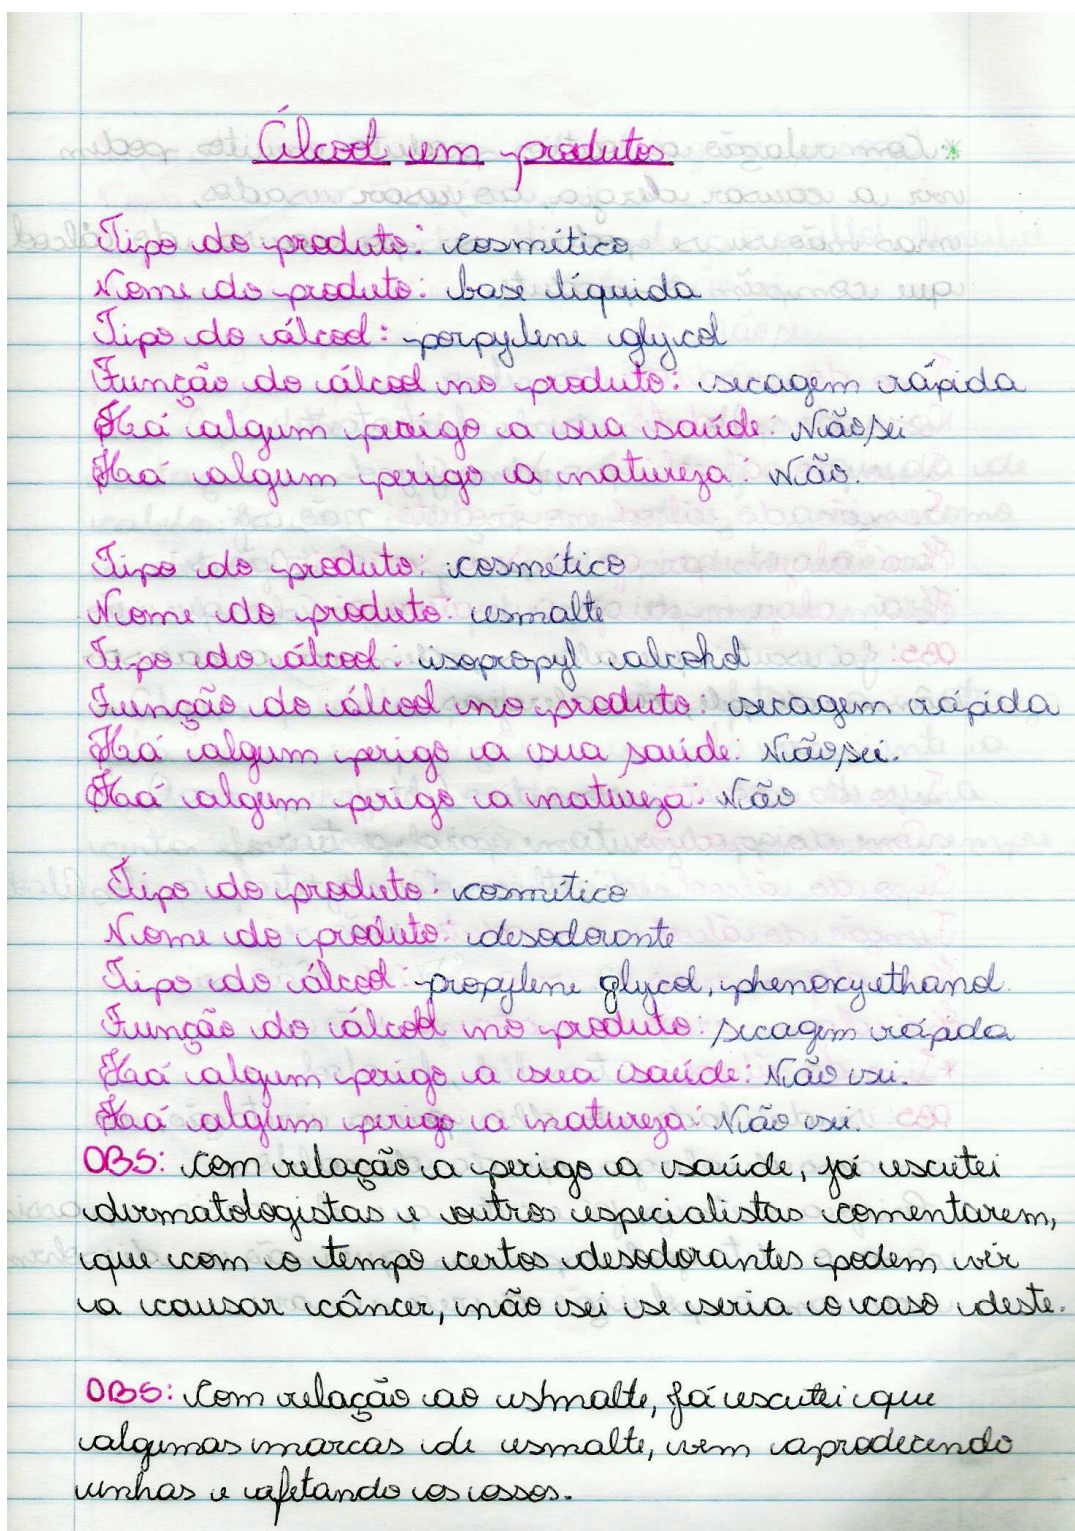 Álcool em produtos
Tipo do produto: cosmético
Nome do produto: base líquida
Tipo do álcool: porpylene glycol
Função do álcool no produto: secagem rápida
Há algum perigo a sua saúde: Não sei
Há algum perigo a natureza: Não.
Tipo do produto: cosmético
Nome do produto: esmalte
Tipo do álcool: isopropyl alcohol
Função do álcool no produto: secagem rápida
Há algum perigo a sua saúde: Não sei.
Há algum perigo a natureza: Não
Tipo do produto: cosmético
Nome do produto: desodorante
Tipo do álcool: propylene glycol, phenoxyethanol.
Função do álcool no produto: secagem rápida
Há algum perigo a sua saúde: Não sei.
Há algum perigo a natureza: Não sei.
OBS: Com relação a perigo a saúde, já escutei
dermatologistas e outros especialistas comentarem,
que com o tempo certos desodorantes podem vir
a causar câncer, não sei se seria o caso deste.
OBS: Com relação ao esmalte, já escutei que
algumas marcas de esmalte, vem aprodecendo
unhas e afetando os ossos.